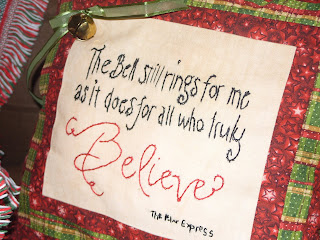 The Bell still rings for me
as it does for all who truly
Believe
The Polar Express